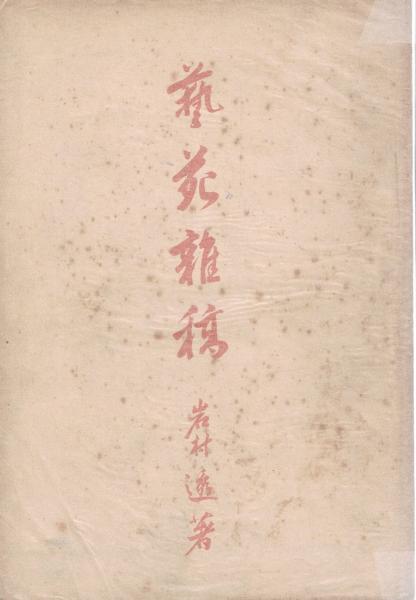 藝苑雜稿
岩村透著